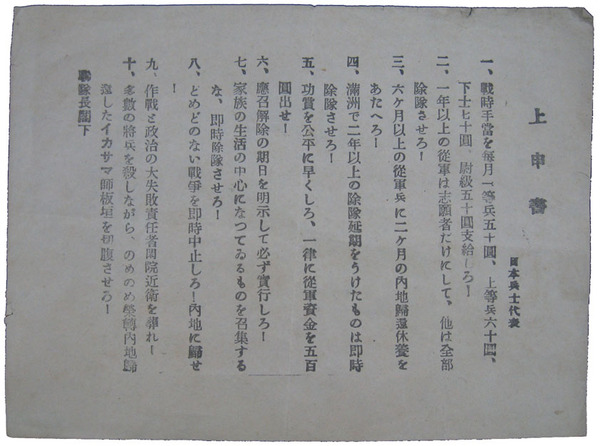 上申書
日本兵士代表
一、戰時手當を毎月一等兵五十圓、上等兵六十圓、
下士七十圓、尉級五十圓支給しろ！
二、一年以上の從軍は志願者だけにして、他は全部
除隊させろ！
三、六ケ月以上の從軍兵に二ケ月の内地歸還休養を
あたへろ！
四、滿洲で二年以上の除隊延期をうけたものは即時
除隊させろ！
五、功賞を公平に早くしろ、一律に從軍資金を五百
圓出せ！
六、應召解除の期日を明示して必ず實行しろ！
七、家族の生活の中心になつてゐるものを召集する
な、即時除隊させろ！
八、とめどのない戰爭を即時中止しろ！内地に歸せ
！
九、作戰と政治の大失敗責任者閑院近衛を葬れ！
十、多數の將兵を殺しながら、のめのめ榮轉内地歸
還したイカサマ師板垣を切腹させろ！
聯隊長閣下